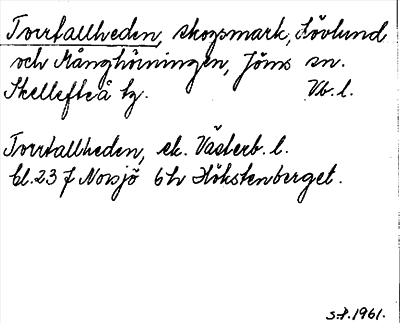 Torrtallheden, skogsmark, Lövlund
och Månghörningen, Jörns sn.
Skellefteå tg. Vb. l.
Torrtallheden, ek. Västerb. l.
bl. 23 J Norsjö 6h Hökstenberget.
S.P. 1961.